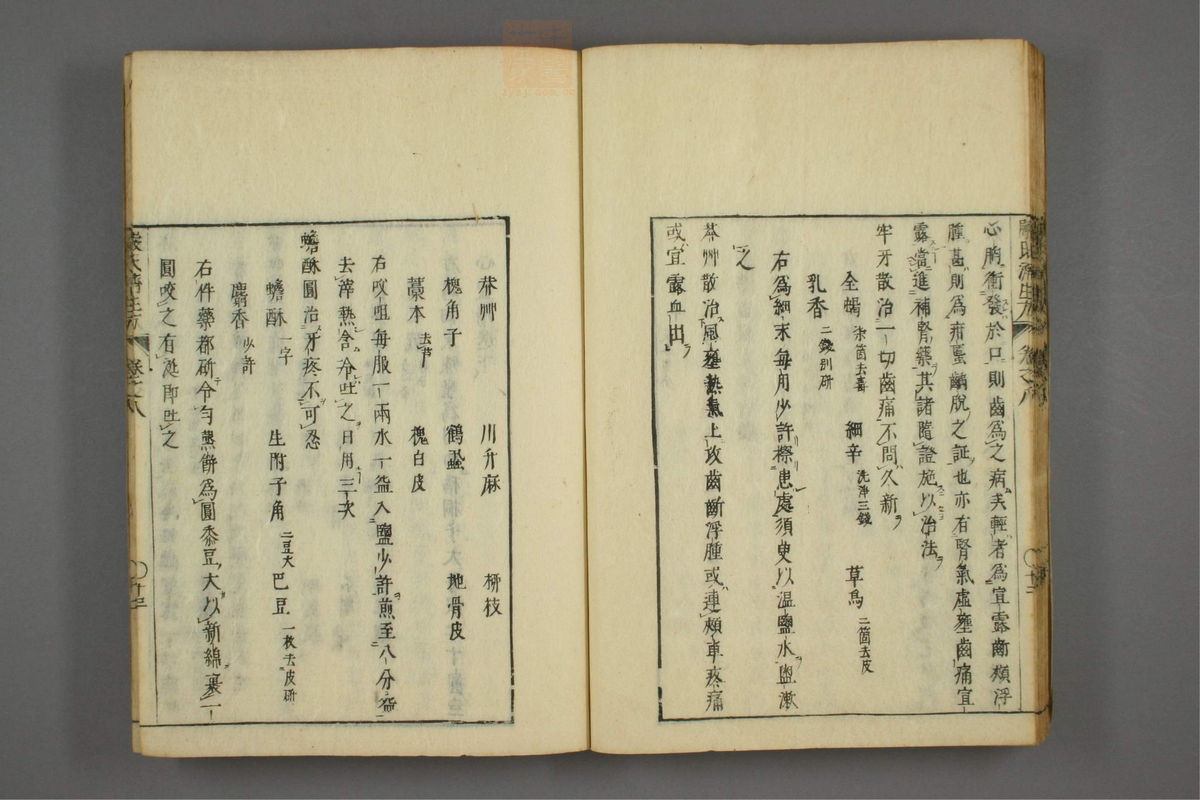 嚴氏濟生方 卷之八 十二
心胸衝發於口則齒爲之病矣輕者爲宣露齗頰浮
腫甚則爲疳䘌齲脫之証也亦有腎氣虛壅齒痛宣
露當進補腎藥其諸隨證施以治法
牢牙散治一切齒痛不問久新
全蝎 柒箇去毒 細辛 洗淨三錢 草烏 二箇去皮
乳香 二錢別研
右爲細末每用少許擦患處須臾以溫鹽水盥漱
之
莽艸散治風壅熱氣上攻齒齗浮腫或連頰車疼痛
或宣露血出
莽艸 川升麻 柳枝
槐角子 鶴虱 地骨皮
藁本 去芦 槐白皮
右㕮咀每服一兩水一盌入鹽少許煎至八分盌
去滓熱含冷吐之日用三次
蟾酥圓治牙疼不可忍
蟾酥 一字 生附子角 二豆大 巴豆 一枚去皮研
麝香 少許
右件藥都研令勻蒸餅爲圓黍豆大以新綿裹一
圓咬之有涎即吐之
嚴氏濟生方 卷之八 十三